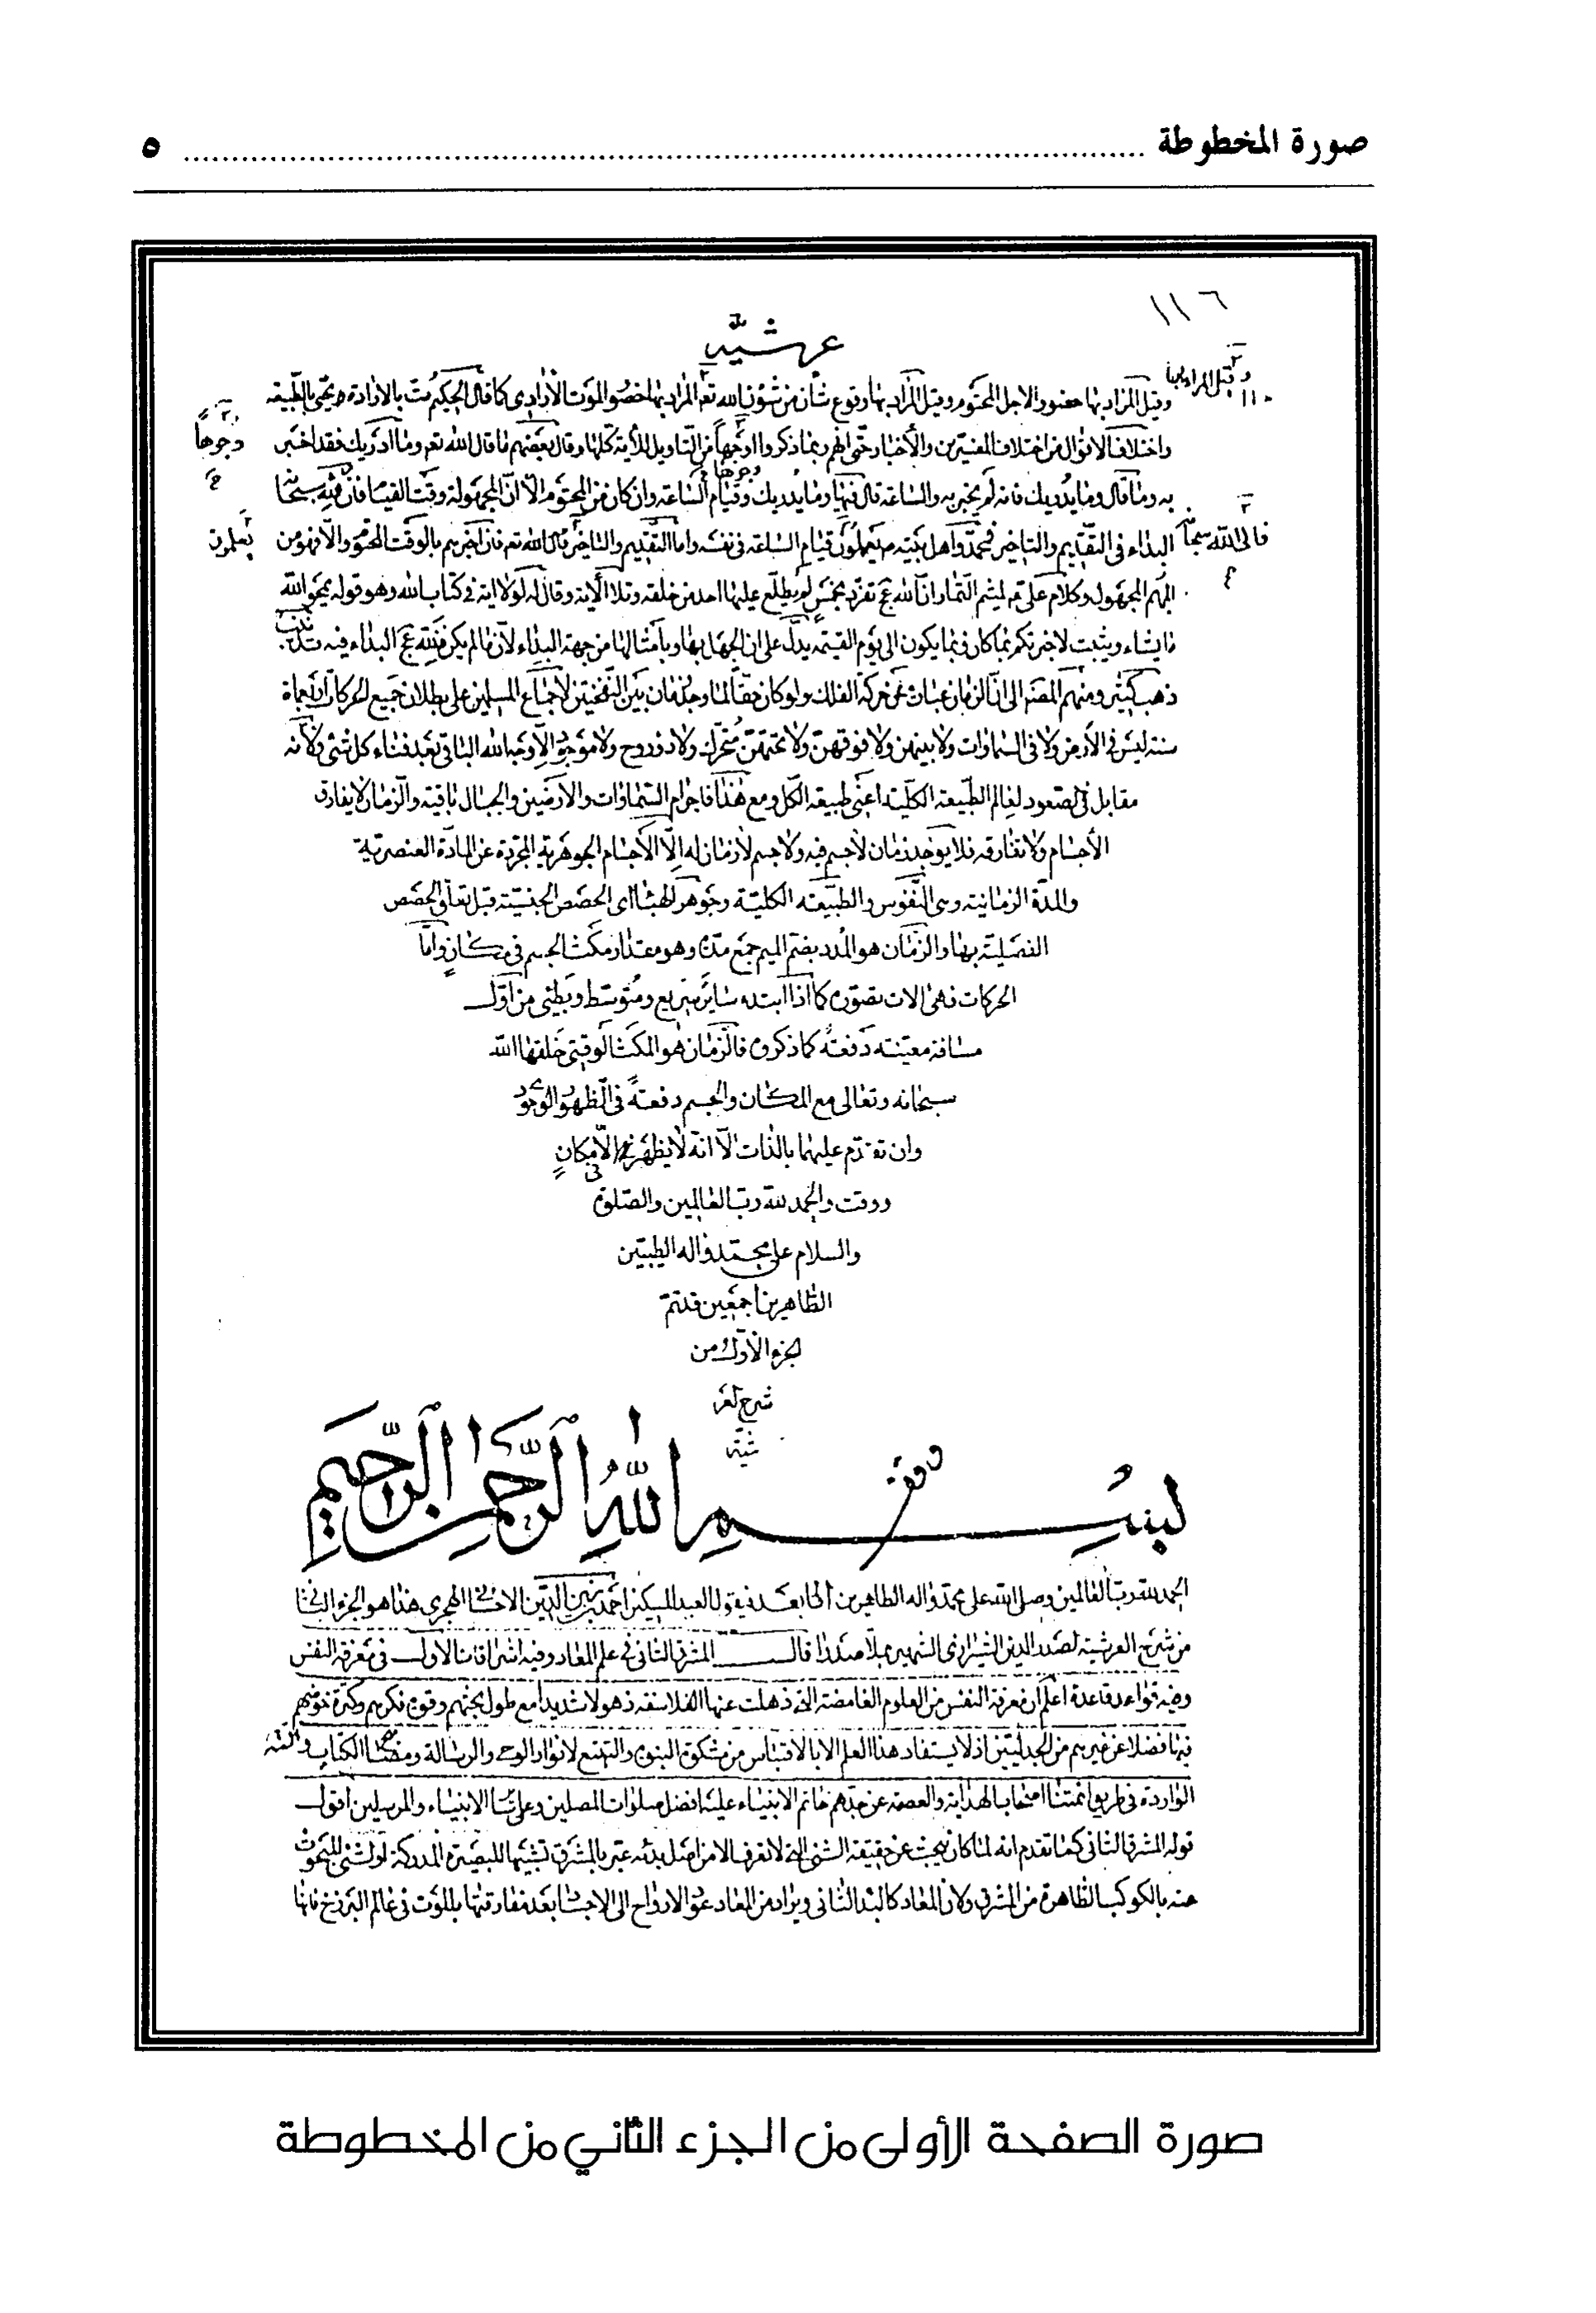 صورة المخطوطة ........ ٥
١١٦
عرشيه
وقيل المراد بها حضور الاجل المحتوم وقيل المراد بها وقوع شأن من شؤن الله تعم المراد بها الموت الأرادي كما قال الحكيم مت بالارادة تحيى بالطبيعه
وقيل المراد بها
واختلاف الاقوال من اختلاف المفسرين والأخبار حتى انهم ربما ذكروا اوجهاً من التاويل للأية كلها وقال بعضهم ما قال الله تعم وما ادريك فقد اخبر
وجوهاً
به وما قال وما يدريك فانه لم يخبر به والساعة قال فيها وما يدريك وقيام الساعة وان كان من المحتوم الّا انّ المجهولة وقت القيام فأن لله سبحانه
البداء في التقديم والتاخير فمحمد واهل بيته يعلمون قيام الساعة في نفسه واما التقديم والتاخير قال الله تعم فان اخبرهم بالوقت المحتوم والّا فهو من
قال الله سبحا
يعلمون
المبهم المجهول وكلام علي لميثم التمار ان الله عج تفرد بخمس لم يطلع عليها احد من خلقه وتلا الأية وقال له لولا اية في كتاب الله وهو قوله يمحو الله
ما يشاء ويثبت لاخبرتكم بما كان وبما يكون الى يوم القيمة يدل على ان الجهل بها وبامثالها من جهة البداء لأن ما لم يكن فلله عج البداء فيه
ذهب كثير ومنهم المصنف الى انّ الزمان عبارة عن حركة الفلك ولو كان حقّاً لما وجد زمان بين النفختين لأجماع المسلمين على بطلان جميع الحركات اربعمأة
سنة ليس في الأرض ولا في السماوات ولا بينهن ولا فوقهنّ ولا تحتهنّ متحرك ولا ذو روح ولا موجود الّا وجه الله الباقي بعد فناء كل شئ ولأنه
مقابل في الصعود لعالم الطبيعة الكلية اعني طبيعة الكل ومع هذا فاجرام السماوات والارضين والجبال باقية والزمان لا يفارق
الأجسام ولا تفارقه فلا يوجد زمان لا جسم فيه ولا جسم لا زمان له الّا الأجسام الجوهرية المجردة عن المادّة العنصرية
والمدّة الزمانية وهي النفوس والطبيعة الكلية وجوهر الهباء اي الحصص الجنسيّة قبل تعلق الحصص
الفصلية بها والزمان هو المدد بضم الميم جمع مدة وهو مقدار مكث الجسم في مكانٍ وامّا
الحركات فهي الات تصوّره كما اذا ابتدء سائر سريع ومتوسط وبطئ من اوّل
مسافة معينة دفعةً كما ذكروه فالزمان هو المكث الوقتي خلقها الله
سبحانه وتعالى مع المكان والجسم دفعةً في الظهور الوجود
وان تقدم عليهما بالذات الّا انّه لا يظهر الّا في مكانٍ
ووقت والحمد لله رب العالمين والصلوة
والسلام على محمد واله الطيبين
الطاهرين اجمعين قد تم
الجزء الاول من
شرح العر
شية
بسم الله الرحمن الرحيم
الحمد لله رب العالمين وصلى الله على محمد واله الطاهرين اما بعد فيقول العبد المسكين احمد بن زين الدين الاحسائي الهجري هذا هو الجزء الثاني
من شرح العرشية لصدر الدين الشيرازي الشهير بملّا صدرا قال المشرق الثاني في علم المعاد وفيه اشراقات الاول في معرفة النفس
وفيه قواعد قاعدة اعلم ان معرفة النفس من العلوم الغامضة التي ذهلت عنها الفلاسفه ذهولا شديدا مع طول بحثهم وقوة فكرهم وكثرة خوضهم
فيها فضلا عن غيرهم من الجدليين اذ لا يستفاد هذا العلم الا بالاقتباس من مشكوة النبوة والتتبع لانوار الوحي والرسالة ومصابيح الكتاب والسنّة
الواردة في طريق ائمتنا اصحاب الهداية والعصمة عن جدهم خاتم الانبياء عليه افضل صلوات المصلين وعلى سائر الانبياء والمرسلين اقول
قوله المشرق الثاني كما تقدم انه لما كان يبحث عن حقيقة الشئ التي لا تعرف الا من اصل بدئه عبر بالمشرق تشبيها للبصيرة المدركة لشئ المبحوث
عنه بالكوكب الظاهرة من المشرق ولان المعاد كالبدء الثاني ويراد من المعاد عود الارواح الى الاجساد بعد مفارقتها بالموت في عالم البرزخ فانها
صورة الصفحة الأولى من الجزء الثاني من المخطوطة